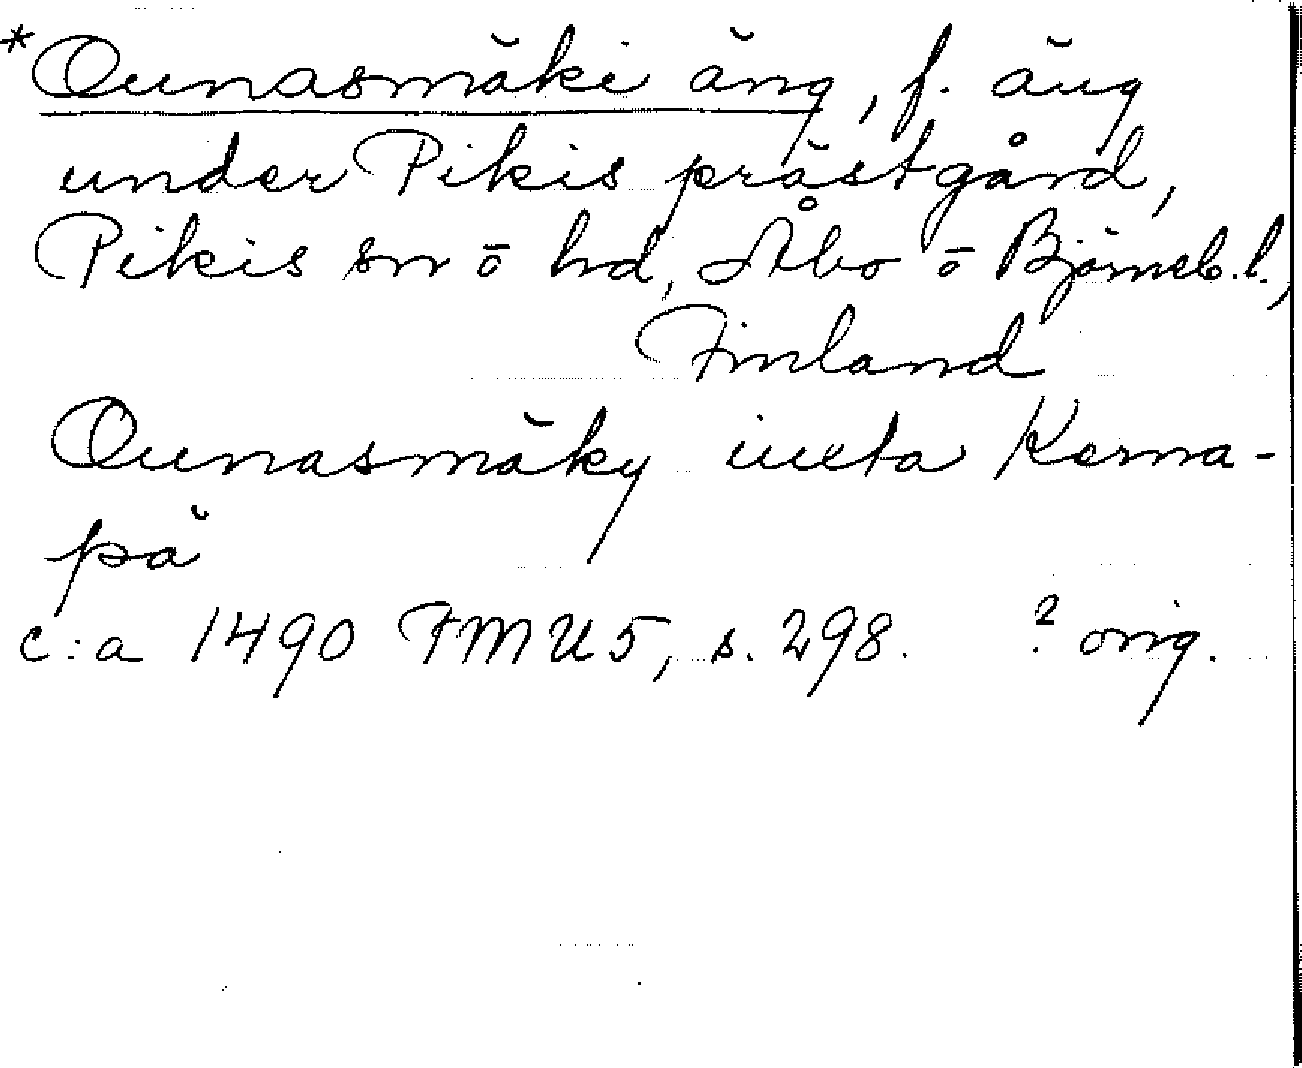 *Ounasmäki äng, f. äng
under Pikis prästgård,
Pikis sn ō hd, Åbo ō Björneb. l.,
Finland
Ounasmäky iuxta Kerna-
pä
c:a 1490 FMU 5, s. 298. ? orig.